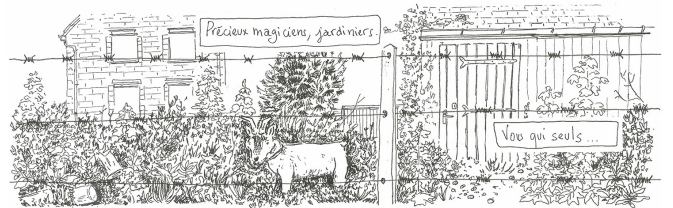 Précieux magiciens, jardiniers.
Vous qui seuls...